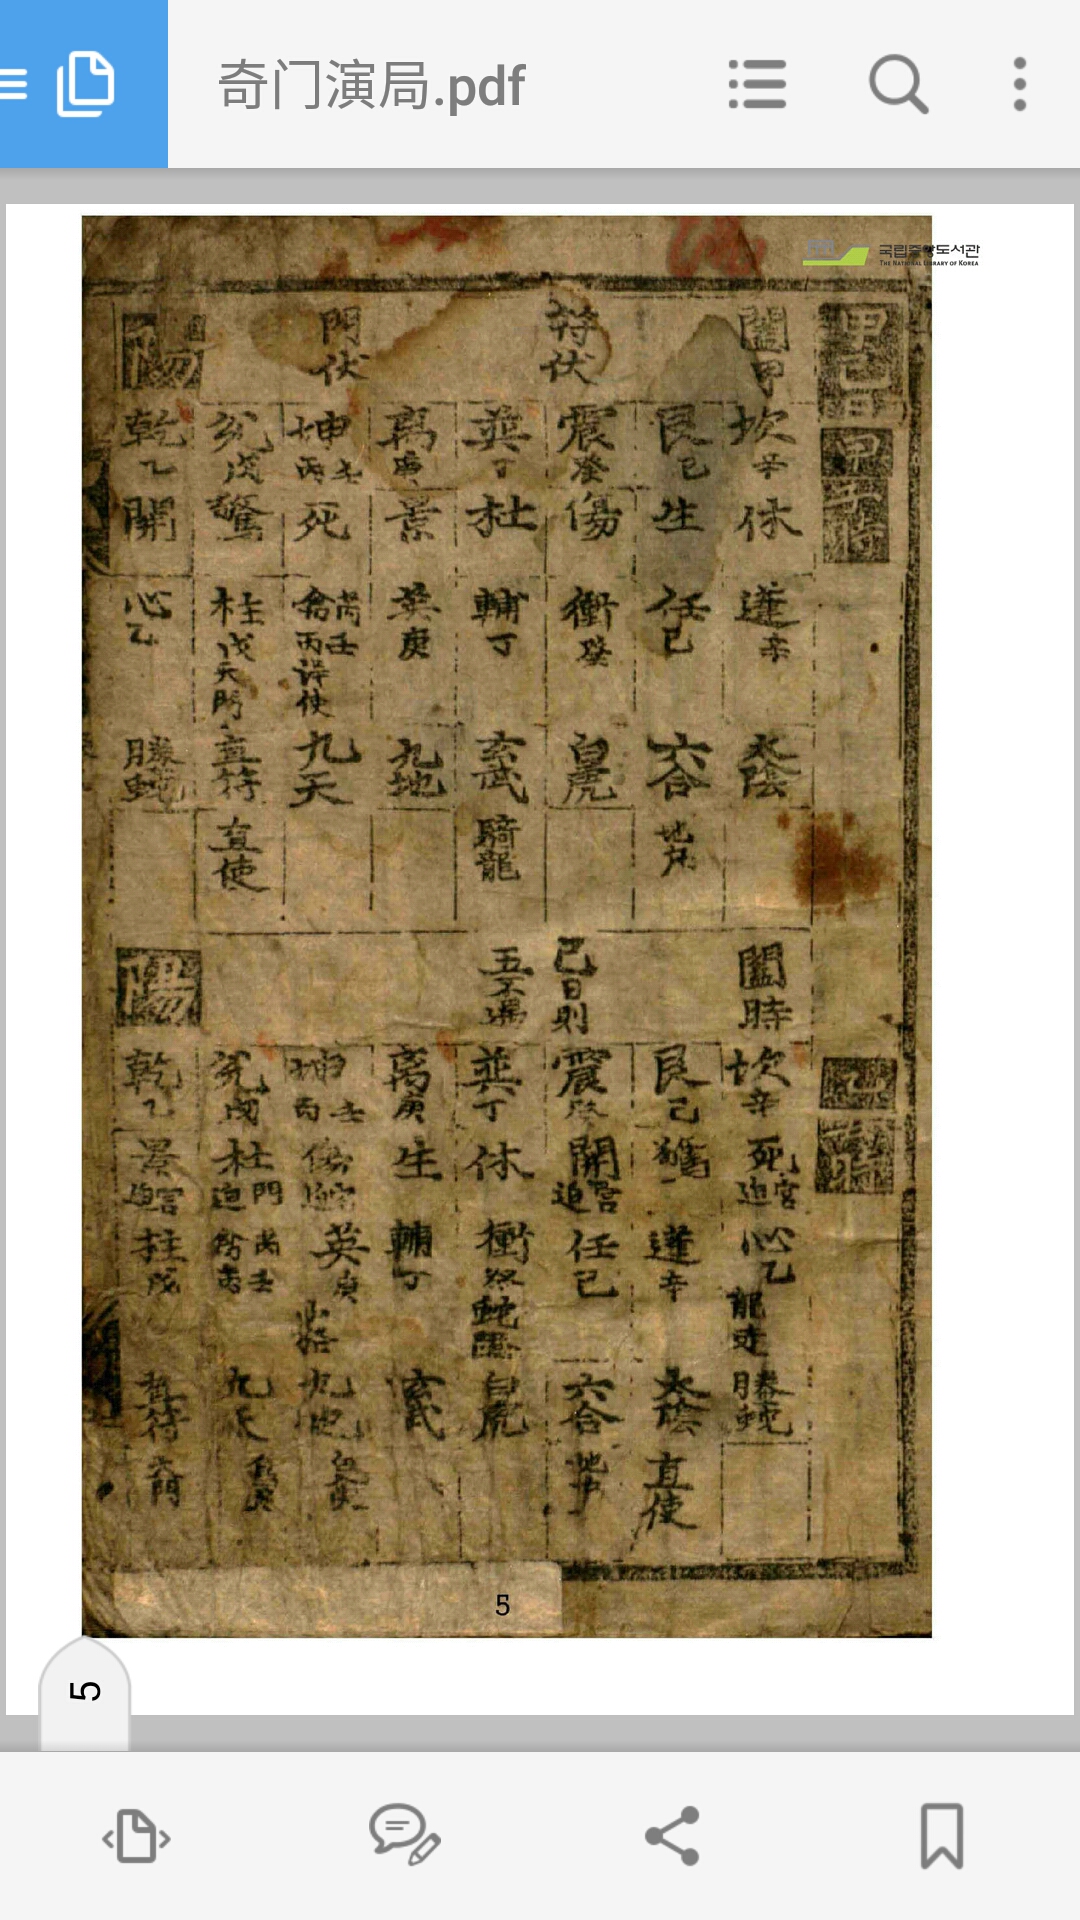 奇门演局.pdf
국립중앙도서관
THE NATIONAL LIBRARY OF KOREA
甲己日
甲子時
闔甲
符伏
門伏
陽
坎 辛 休 蓬 辛 太陰
艮 己 生 任 己 六合 地戶
震 癸 傷 衝 癸 白虎
巽 丁 杜 輔 丁 玄武 騎龍
离 庚 景 英 庚 九地
坤 丙 壬 死 禽 芮 丙 壬 詐使 九天
兌 戊 驚 柱 戊 天門 直符 直使
乾 乙 開 心 乙 螣蛇
時
闔時
己日則
五不遇
陽
坎 辛 死 迫宮 心 乙 龍走 螣蛇
艮 己 驚 蓬 辛 太陰 直使
震 癸 開 迫宮 任 己 六合 地戶
巽 丁 休 衝 癸 蛇 白虎
离 庚 生 輔 丁 玄武
坤 丙 壬 傷 英 庚 九地
兌 戊 杜 迫門 禽 芮 丙 壬 九天
乾 乙 景 迫宮 柱 戊 直符 天門
5
5